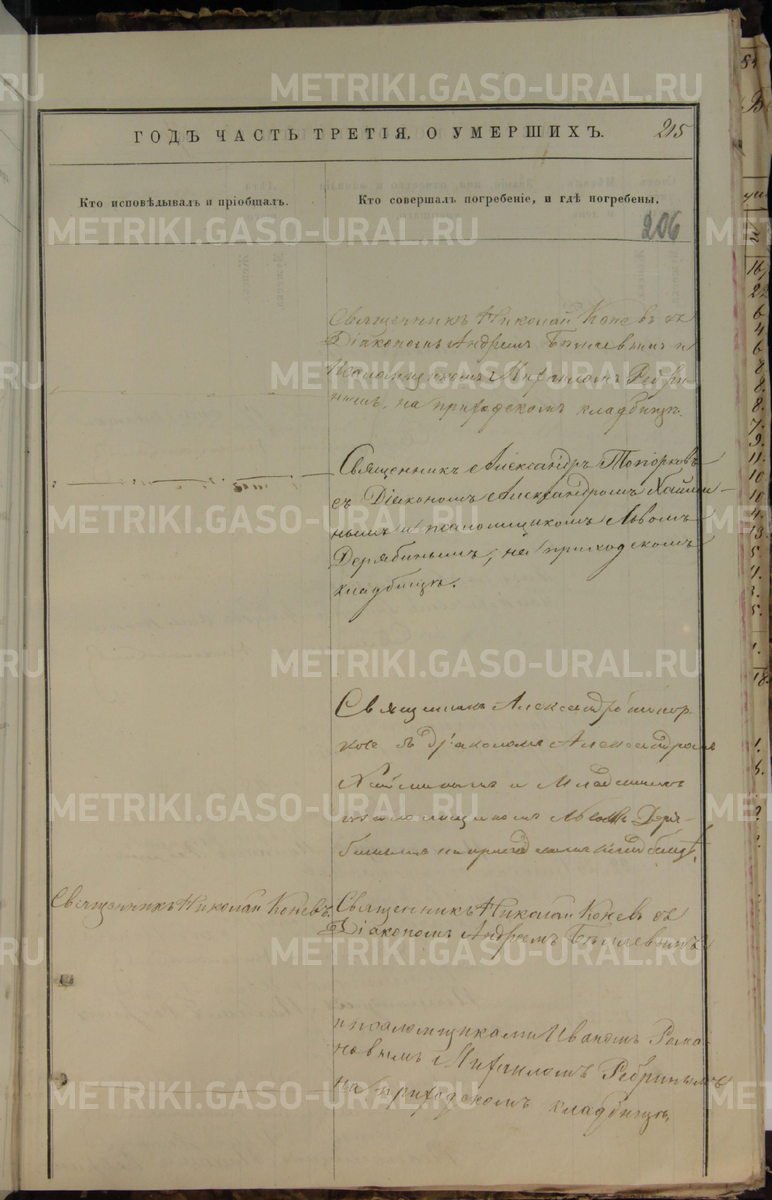 ГОДЪ ЧАСТЬ ТРЕТІЯ, О УМЕРШИХЪ. 215
Кто исповѣдывалъ и пріобщалъ.
Кто совершалъ погребеніе, и гдѣ погребены.
206
Священникъ Николай Коневъ съ
Діакономъ Андреемъ
Псаломщикомъ Михаиломъ Ребри
нымъ, на приходскомъ кладбищѣ.
Священникъ Александръ Топорковъ
съ Діакономъ Александромъ Хайми
нымъ и псаломщикомъ Львомъ
Дерябинымъ, на приходскомъ
кладбищѣ.
Священникъ Александръ Топор
ковъ съ Діакономъ Александромъ
Хайминымъ и Младшимъ
псаломщикомъ Львомъ Деря-
бинымъ на приходскомъ кладбищѣ.
Священникъ Николай Коневъ.
Священникъ Николай Коневъ съ
Діакономъ Андреемъ
и псаломщиками Иваномъ Рома
новымъ и Михаиломъ Ребринымъ
на приходскомъ кладбищѣ
METRIKI.GASO-URAL.RU